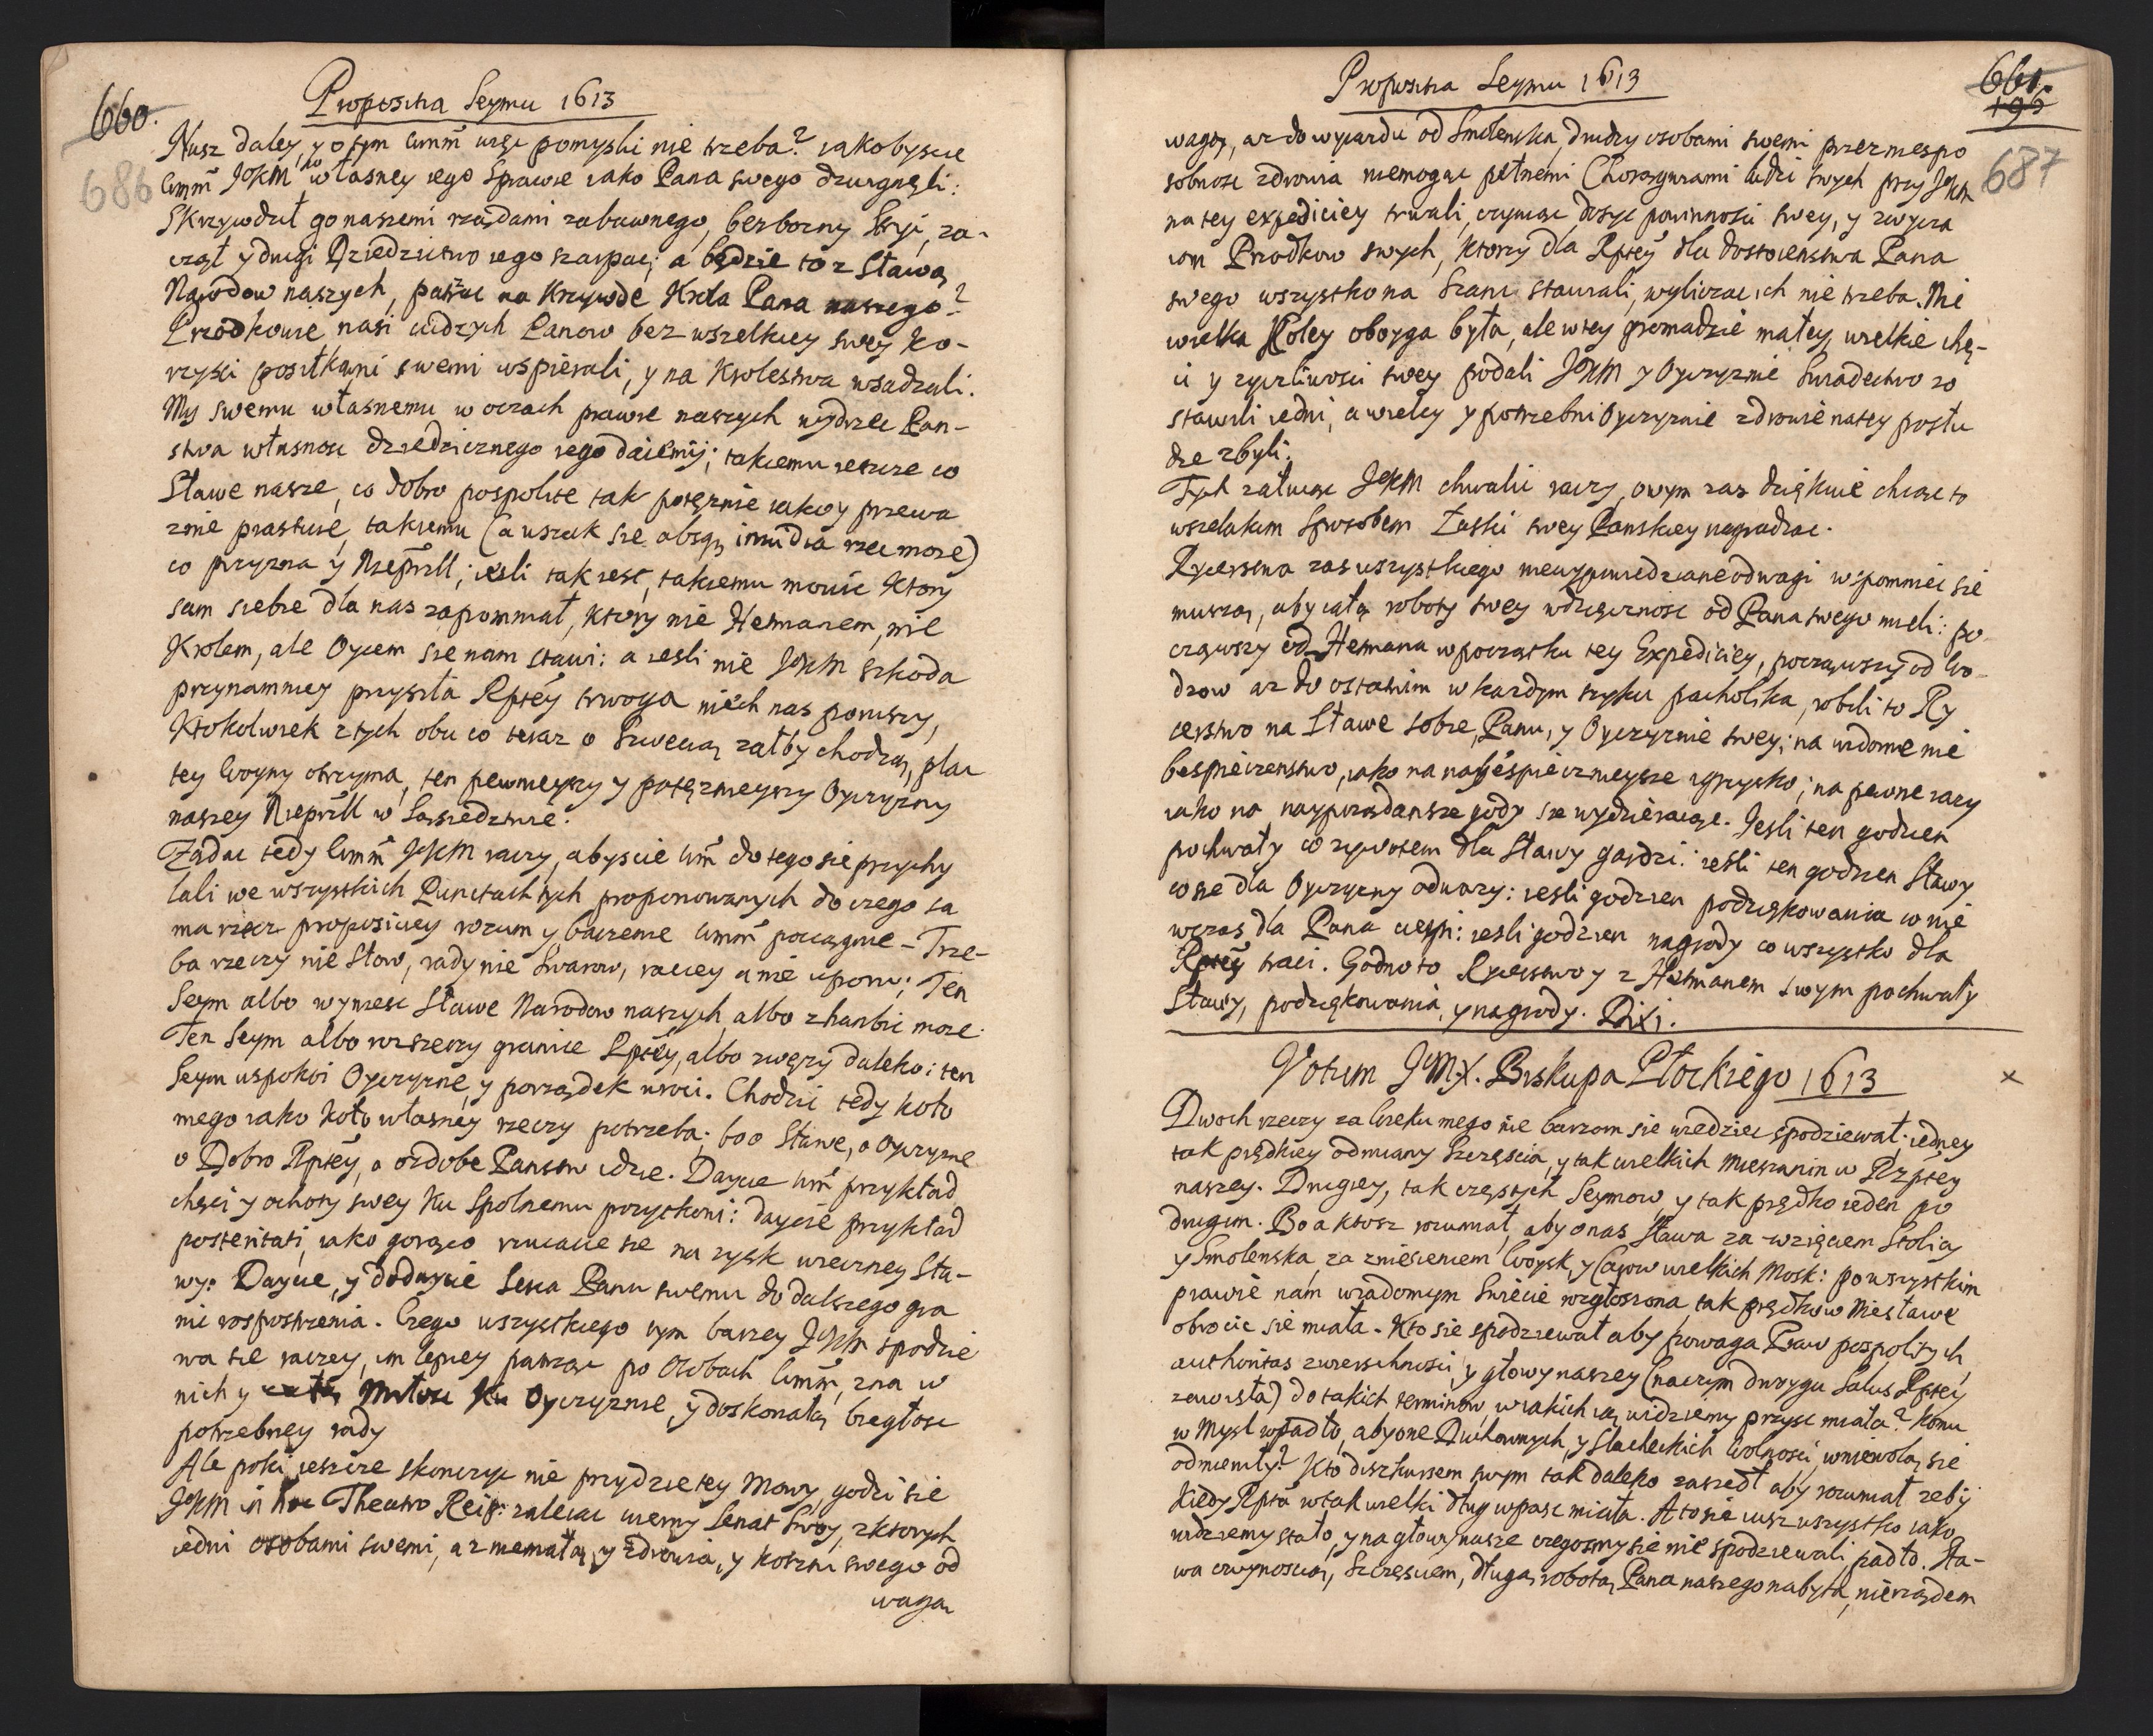 660.
686
Propositia Seymu 1613
Nusz daley, y o tym Wmm̃ wsz. pomyslic nie trzeba? iakobyscie
Wmm̃ JoKM w własney iego Sprawie iako Pana swego dzwignęli:
Skrzywdził go naszemi rządami zabawnego, bezbozny Stryi, za-
czął y drugi Dziedzictwo iego szarpac; a będzie to z Sławą
Narodow naszych, patrzac na Krzywde Krola Pana naszego?
Przodkowie nasi cudzych Panow bez wszelkiey swey Ko-
rzysci posiłkami swemi wspierali, y na Krolestwa wsadzali.
My swemu własnemu w oczach prawie naszych wydrzec Pan-
stwa własnosc dziedzicznego iego daiemy; takiemu ieszcze co
Sławe nasze, co dobro pospolite tak potęznie iako y przewa
znie piastuie, takiemu (a wszak sie absq; inuidia rzec moze)
co przyzna y Nieprzll; iesli tak iest, takiemu mowie ktory
sam siebie dla nas zapomniał, ktory nie Hetmanem, nie
Krolem, ale Oycem sie nam stawi: a iesli nie JoKM szkoda
przynamniey przyszła Rptey trwoga niech nas poruszy,
Ktokolwiek z tych obu co teraz o Szwecią załby chodzą, plac
tey Woyny otrzyma, ten pewnieyszy y potęznieyszy Oyczyzny
naszey Nieprzll w Sąsiedztwie.
Ządac tedy Wmm̃ JoKM raczy, abyscie Wm̃ do tego sie przychy
lali we wszystkich Punctach tych proponowanych do czego sa
ma rzecz propositiey rozum y baczenie Wmm̃ pociągnie - Trze-
ba rzeczy nie Słow, rady nie Swarow, raciey a nie uporu; Ten
Seym albo wyniesc Sławe Narodow naszych, albo zhanbic moze.
Ten Seym albo rozszerzy granice Rptey, albo zwęzy daleko: ten
Seym uspokoi Oyczyzne, y porządek wroci. Chodzic tedy koło
niego iako koło własney rzeczy potrzeba; bo o Sławe, o Oyczyzne
o Dobro Rptey, o ozdobe Panstw idzie. Daycie Wm̃ przykład
chęci y ochoty swey ku Spolnemu pozytkowi: daycie przykład
posteritati, iako gorąco rzucacie sie na zysk wieczney Sła-
wy. Daycie, y dodaycie Serca Panu swemu do dalszego gra
nic rospostrzenia. Czego wszystkiego tym barzey JoKM spodzie
wa sie raczey, im lepiey patrząc po Osobach Wmm̃, zna w
nich y Miłosc Ku Oyczyznie, y doskonałą biegłosc
potrzebney rady
Ale poki ieszcze skonczyc nie przydzie tey Mowy, godzi sie
JoKM in hoc Theatro Reip: zalecac wierny Senat Swoy, z ktorych
iedni osobami swemi, az niemałą y zdrowia, y kosztu swego od
wagą
661.
195
687
Propositia Seymu 1613
wagą, az do wyiazdu od Smolenska, drudzy osobami swemi przez niespo
sobnosc zdrowia niemogąc pełnemi Chorągwiami ludzi swych przy JoKM
na tey expediciey trwali, czyniac dosyc powinnosci swey, y zwycza
iom Przodkow swych, Ktorzy dla Rptey dla dostoienstwa Pana
swego wszystko na Szanc stawiali, wyliczac ich nie trzeba. Nie
wielka Koley oboyga była, ale w tey gromadzie małey, wielkie chę-
ci y zyczliwosci swey podali JoKM y Oyczyznie Swiadectwo zo
stawili iedni, a wielcy y potrzebni Oyczyznie zdrowie na tey posłu
dze zbyli.
Tych załuiąc JoKM chwalic raczy, owym zas dziękuie chcac to
wszelakim Sposobem Łaski swey Panskiey nagradzac.
Rycerstwa zas wszystkiego niewypowiedziane odwagi wspomniec sie
muszą, aby całą roboty swey wdzięcznosc od Pana swego mieli: po-
cząwszy od Hetmana w początku tey Expediciey, począwszy od Wo-
dzow az do ostatnim w kazdym szyku pacholika, robili to Ry
cerstwo na Sławe sobie, Panu, y Oyczyznie swey; na widome nie
bespieczenstwo, iako na naybespiecznieysze igrzysko; na pewne razy
iako na naypoządansze gody sie wydzieraiąc. Jesli ten godzien
pochwały co zywotem dla Sławy gardzi: iesli ten godzien Sławy
co sie dla Oyczyzny odwazy: iesli godzien podziękowania co nie
wczas dla Pana cierpi: iesli godzien nagrody co wszystko dla
Rptey traci. Godno to Rycerstwo y z Hetmanem swym pochwały
Sławy, podziękowania, y nagrody. Dixi.
Votum JMX. Biskupa Płockiego 1613
x
Dwoch rzeczy za Wieku mego nie barzom sie widziec spodziewał; iedney
tak prędkiey odmiany Szczęscia, y tak wielkich Mieszanin w Rzptey
naszey. Drugiey, tak częstych Seymow, y tak prędko ieden po
drugim. Bo a ktosz rozumiał, aby o nas Sława za wzięciem Stolicy
y Smolenska, za zniesieniem Woysk, y Carow wielkich Mosk: po wszystkim
prawie nam wiadomym Swiecie rozgłoszona, tak prędko w Niesławe
obrocic sie miała. Kto sie spodziewał aby powaga Praw pospolitych
authoritas zwierzchnosci y głowy naszey (na czym dwoygu Salus Rptey
zawisła) do takich terminow, w iakich ią widziemy przysc miała? Komu
w Mysl wpadło, aby one Duchownych, y Slacheckich Wolnosci, w niewolą sie
odmieniły? Kto diszkursem swym tak daleko zaszedł aby rozumiał zeby
Kiedy Rpta w tak wielki dług wpasc miała. A to sie iusz wszystko iako
widziemy stało, y na głowy nasze czegosmy sie nie spodziewali padło. Sła-
wa czuynoscią, Szczęsciem, długą robotą Pana naszego nabyta, nierządem